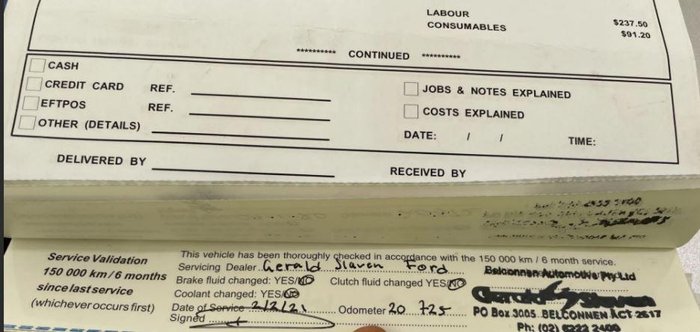 LABOUR $237.50
CONSUMABLES $91.20
********** CONTINUED **********
CASH
CREDIT CARD REF.
EFTPOS REF.
OTHER (DETAILS)
JOBS & NOTES EXPLAINED
COSTS EXPLAINED
DATE: / / TIME:
DELIVERED BY
RECEIVED BY
Service Validation
150 000 km / 6 months
since last service
(whichever occurs first)
This vehicle has been thoroughly checked in accordance with the 150 000 km / 6 month service.
Servicing Dealer Gerald Slaven Ford
Brake fluid changed: YES/NO Clutch fluid changed YES/NO
Coolant changed: YES/NO
Date of Service 2/2/21 Odometer 20 725
Signed
Belconnen Automotive Pty Ltd
Gerald Slaven
PO Box 3005 BELCONNEN ACT 2617
Ph: (02) 6222 2400